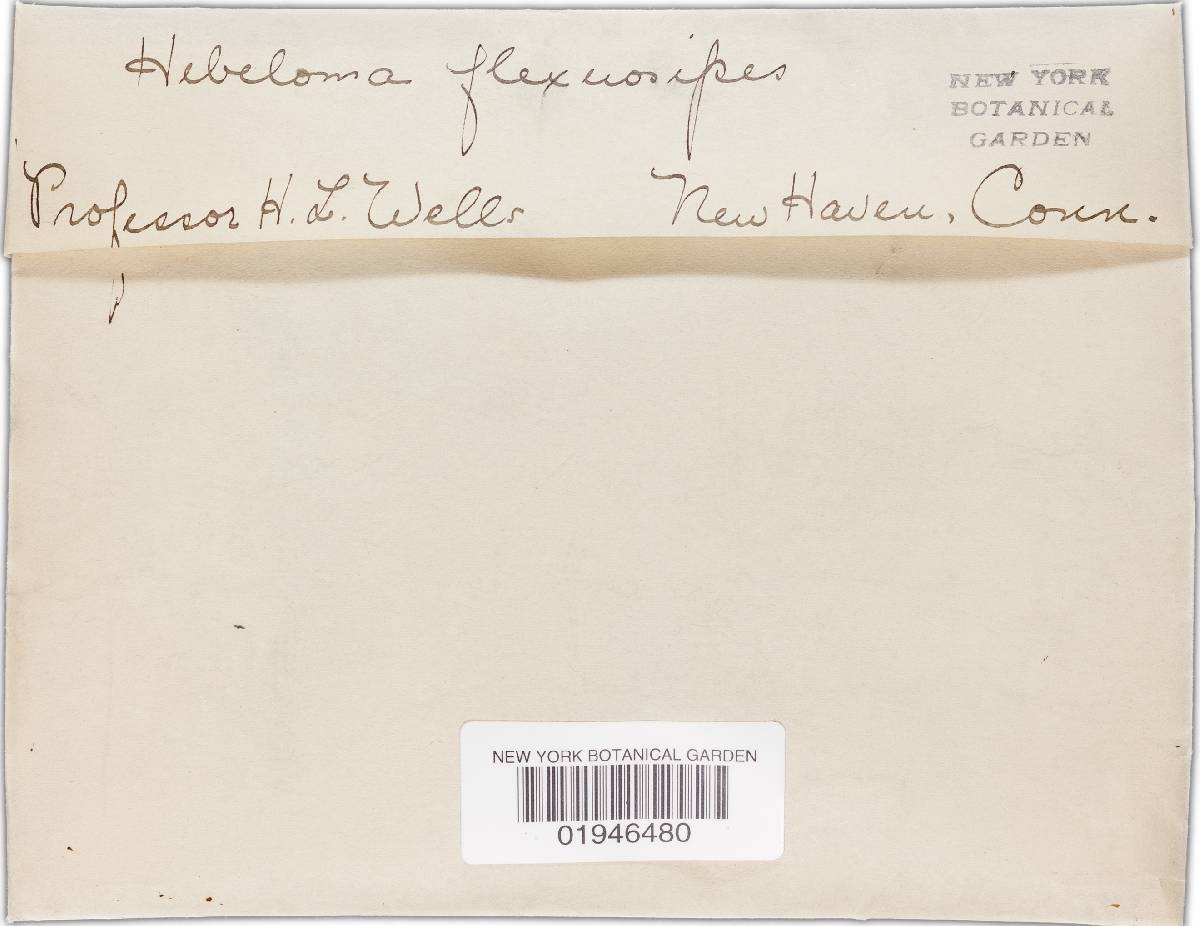 Hebeloma flexuosipes
NEW YORK
BOTANICAL
GARDEN
Professor H. L. Wells New Haven, Conn.
NEW YORK BOTANICAL GARDEN
01946480